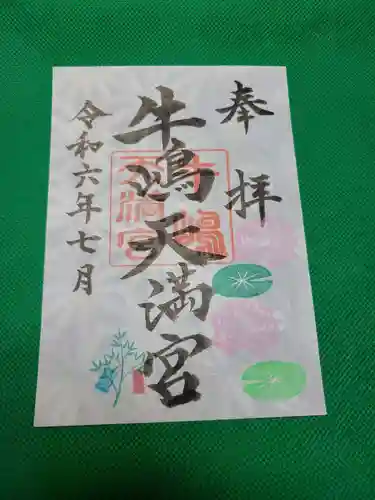 奉拝
牛嶋天満宮
牛嶋
天満宮
令和六年七月